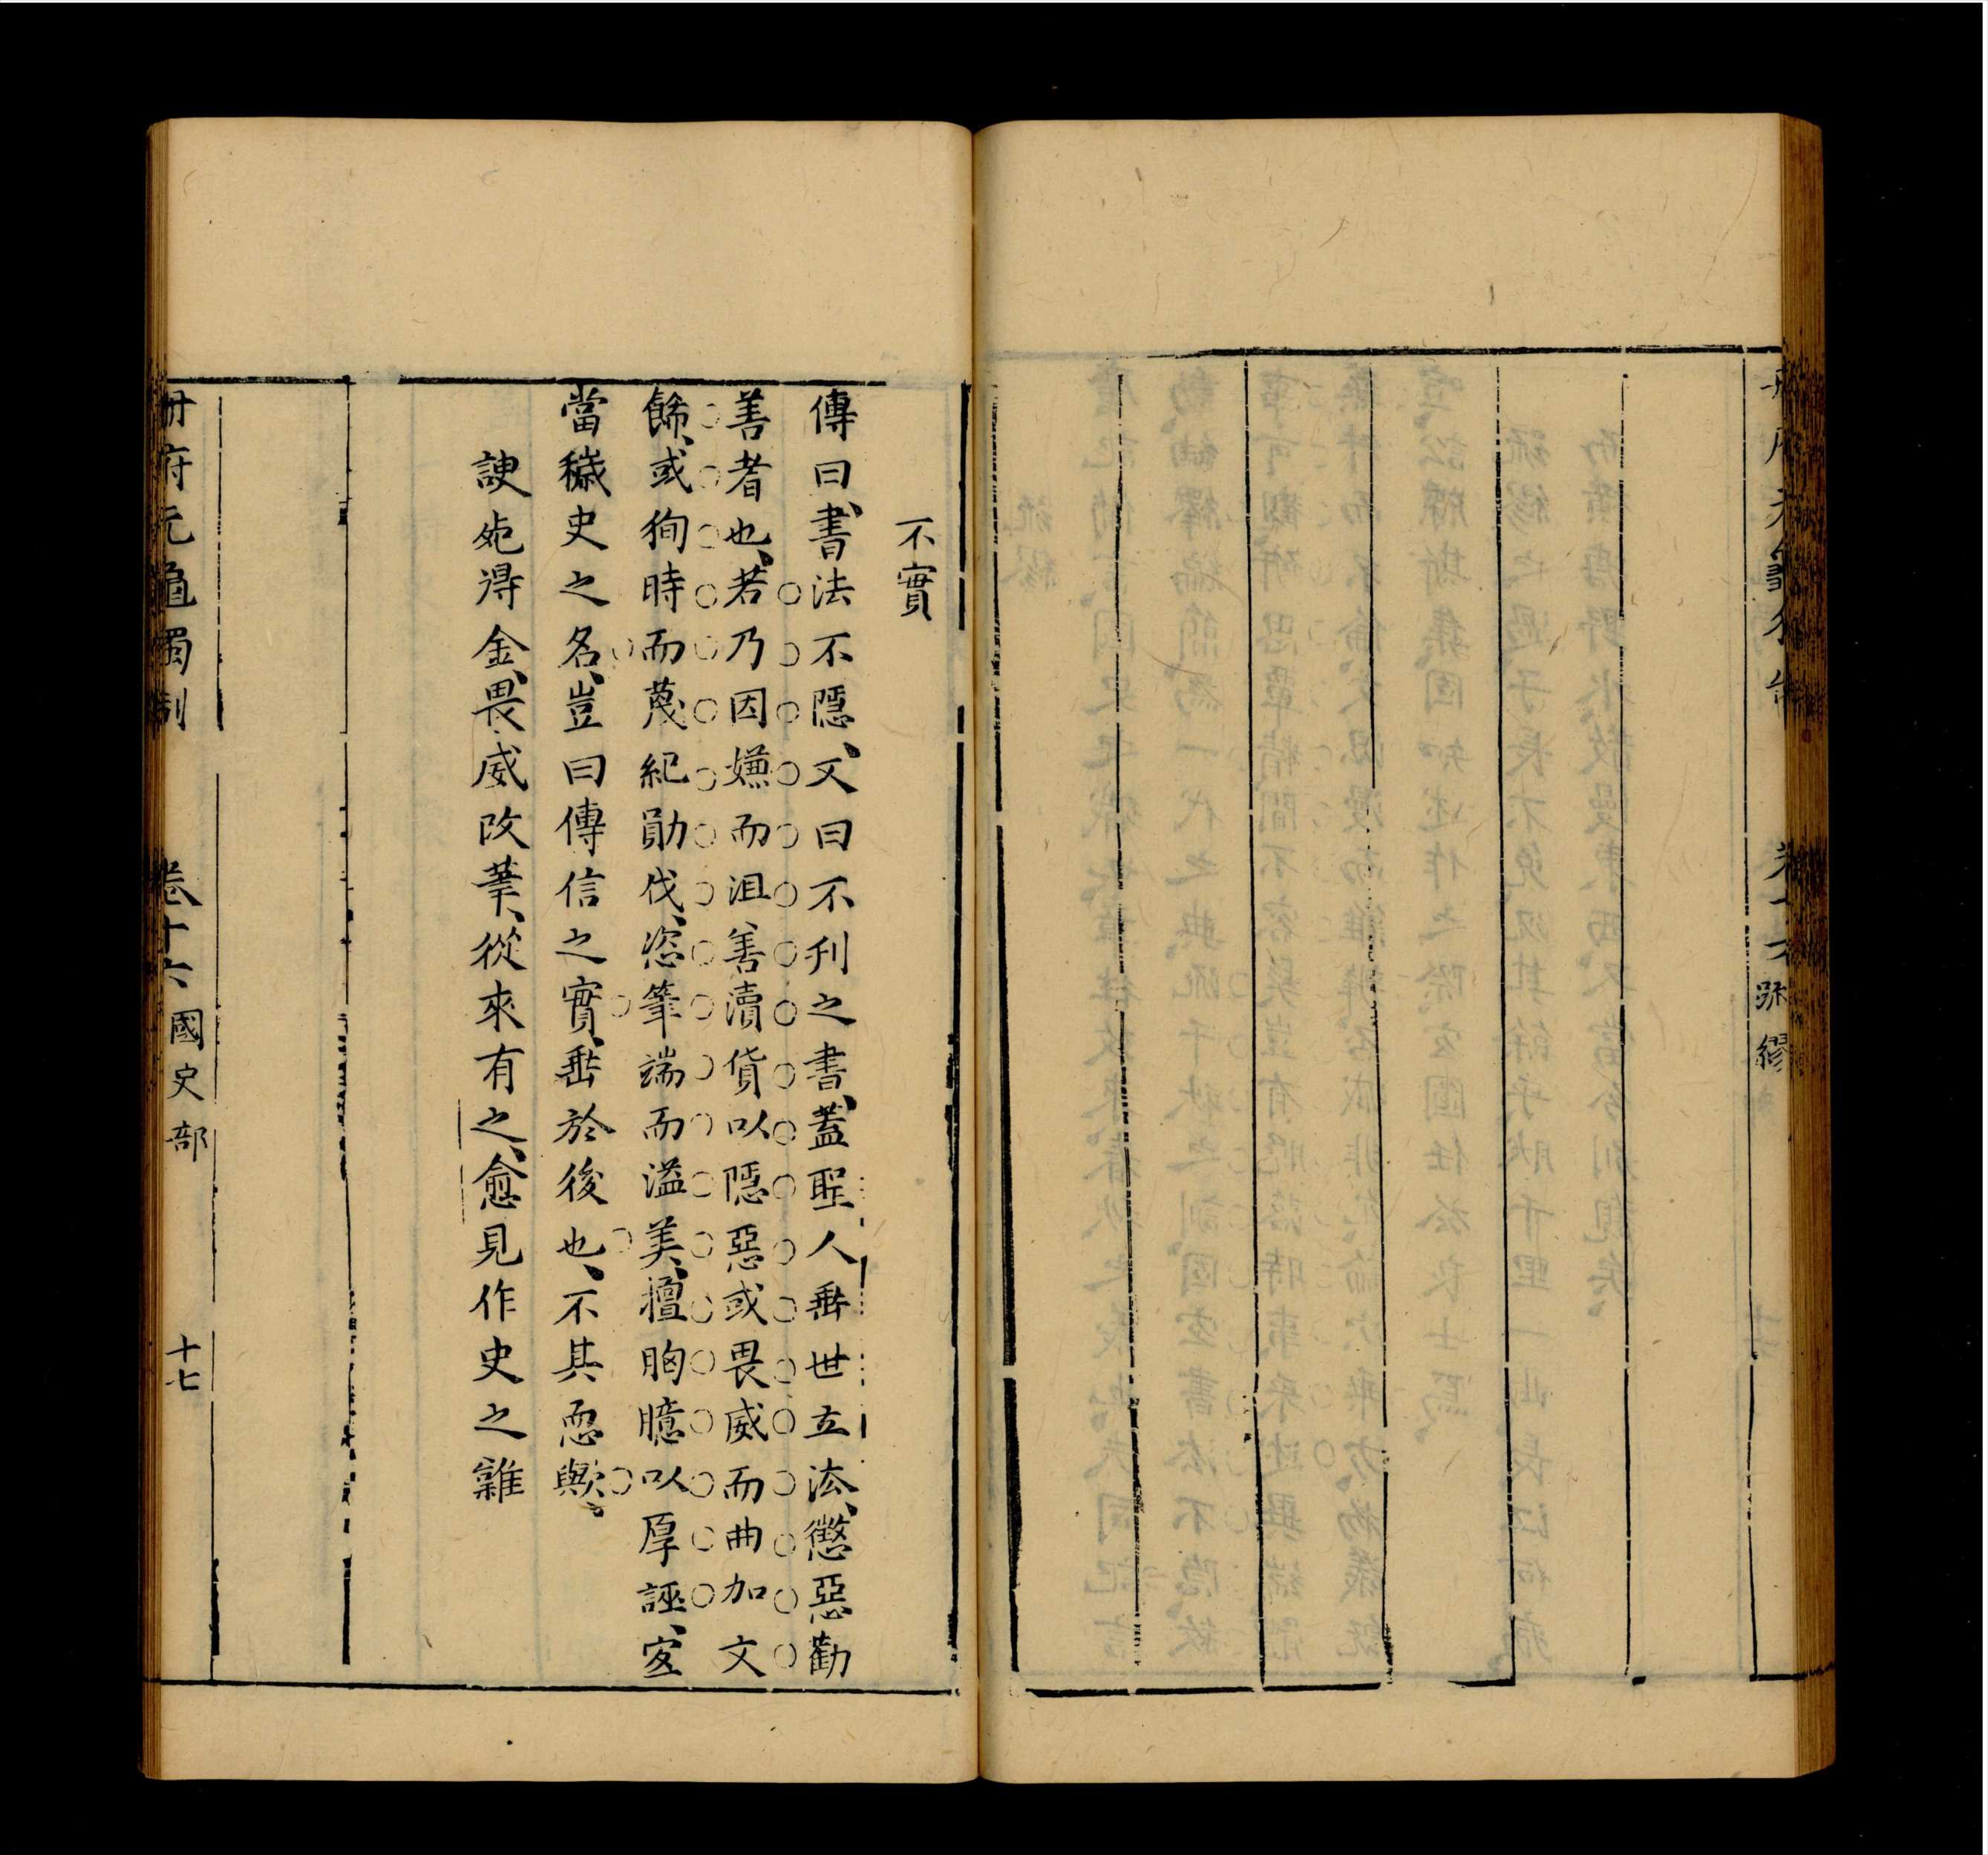 疏繆
不實
傳曰、書法不隱、又曰不刋之書、蓋聖人垂世立法、懲惡勸
善者也、若乃因嫌而沮善瀆貨以隱惡或畏威而曲加文
餙、或狥時而蔑紀勛伐、恣筆端而溢美、擅胸臆以厚誣、宐
當穢史之名、豈曰傳信之實、垂於後也、不其恧歟、
諛䛕得金、畏威改葉、從來有之、愈見作史之難
冊府元龜獨制
卷十六
國史部
十七